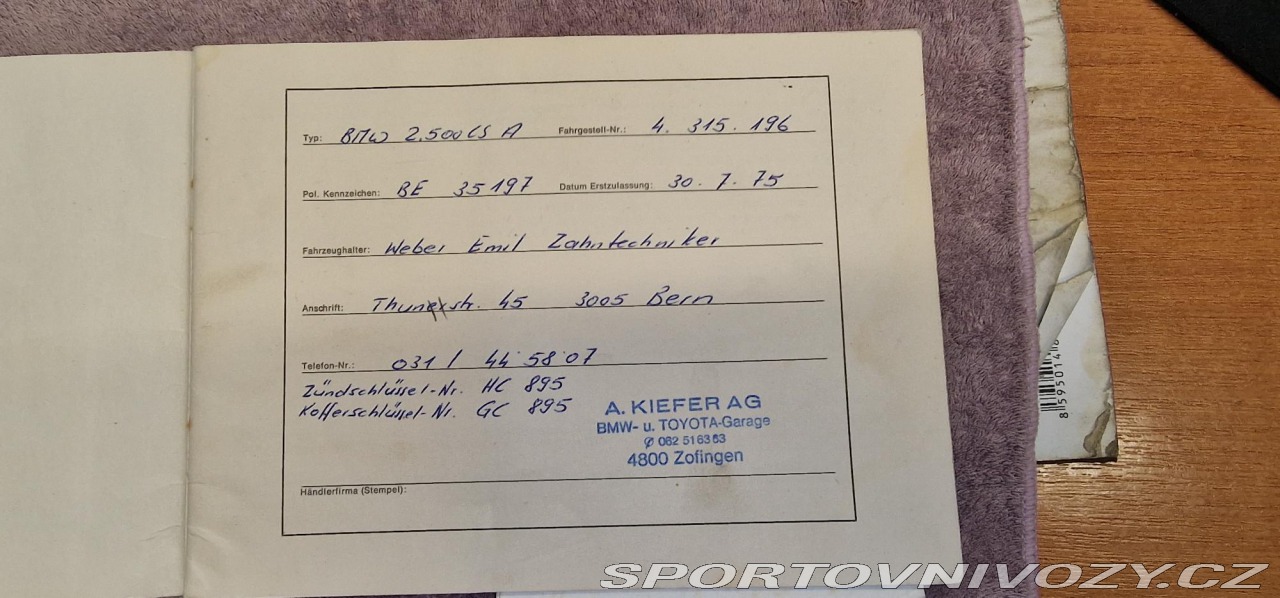 Typ: BMW 2.500 CS A Fahrgestell-Nr.: 4. 315. 196
Pol. Kennzeichen: BE 35197 Datum Erstzulassung: 30. 7. 75
Fahrzeughalter: Weber Emil Zahntechniker
Anschrift: Thunstr. 45 3005 Bern
Telefon-Nr.: 031 / 44 58 07
Zündschlüssel-Nr. HC 895
Kofferschlüssel-Nr. GC 895
A. KIEFER AG
BMW- u. TOYOTA-Garage
062 51 63 63
4800 Zofingen
Händlerfirma (Stempel):
SPORTOVNIVOZY.CZ